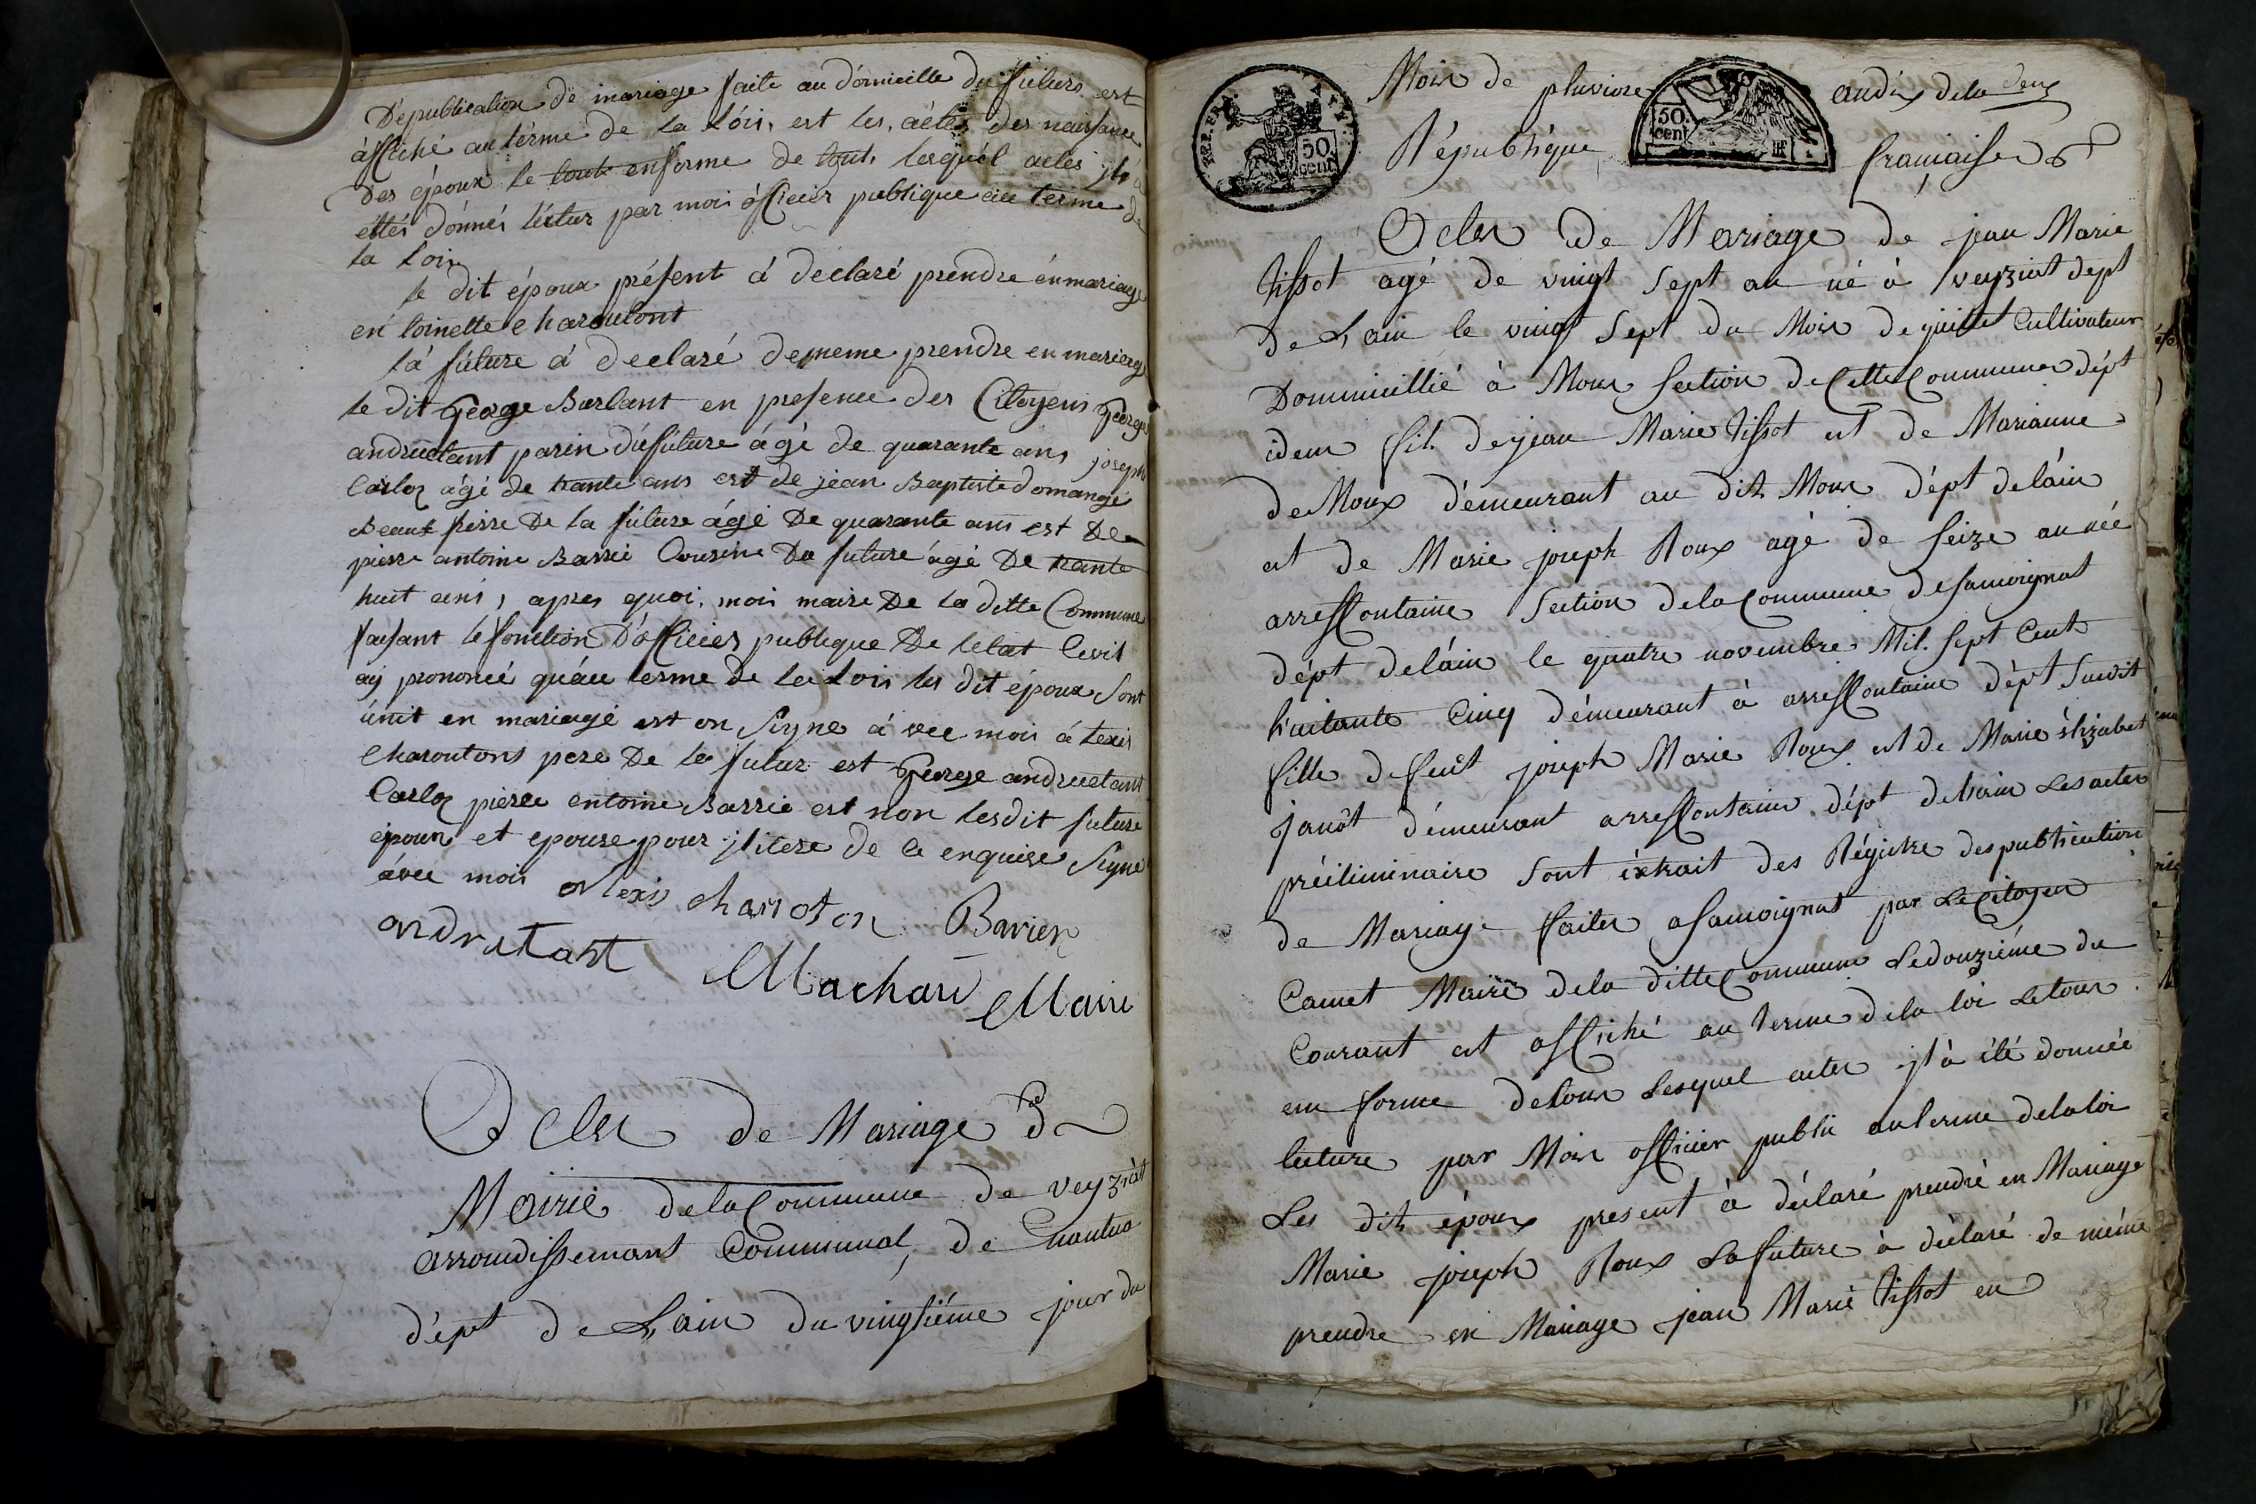 Dépublication de mariage faite au domicille du futures est
affiché au términe de la Lois, est les, actes des naissance
Des époux le tout enforme de tout, lesquél actes jl à
éttés donnés léctur par moi officier publique au terme de
la Loix
le dit époux présent á declaré prendre énmariage
en toinette charoutont
la future á declaré dememe prendre en mariage
le dit George Barlant en presence des Citoyens George
andruetant parin dufuture ágé de quarante ans joseph
Carloz ágé de trante ans est de jean Baptiste domange
Beaux frerre De la future ágé De quarante ans est De
pierre antoine Barrié Cousine Du future ágé De trante
huit ans, apres quoi, moi maire De la ditte Commune
faisant le fonction D'officier publique De letat Cevil
aij prononcé quáu terme de la Lois les dit époux Sont
unit en mariagé est on Signe á vec moi á lexis
Charoutons pere De la futur est George andruetant
Carloz pierre entoine Barrié est non lesdit future
époux et epouse pour jlitere de ce enquise Signe
ávec moi
alexis charroton Barrier
andrutant
Machard Maire
Actes de Mariage
Mairie delaCommune de veyziat
arroudissemant Communal, de Nantua
dépt de L'ain du vingtiéme jour du
Mois de pluviose andix dela deux
République francaise
REP. FRA.
50 cent
50. cent
Actes de Mariage de jean Marie
tissot agé de vingt Sept an né à veyziat dept
de L'ain le vingt Sept du Mois de juillet Cultivateur
Dommicillié à Moux Section deCetteCommune dépt
idem fils dejean Marie tissot et de Marianne
deMoux démeurant au dit Moux dépt deláin
et de Marie joseph Roux agé de Seize an née
arreffontaine Section delaCommune desamoignat
dépt deláin le quatre novembre Mil. Sept Cent
huitante Cinq démeurant à arreffontaine dépt Susdit
fille defeût joseph Marie Roux et de Marie élizabet
janôt démeurant arreffontaine dépt delhain Lesactes
préiliminaire Sont éxtrait des Régistre despublication
de Mariage faites asamoignat par LeCitoyen
Camet Maire dela ditteCommune Ledouziéme du
Courant et affiché au terme dela loi Letoux
en forme detoux Lesquel actes jl à été donnée
lecture par Moi officier public auterme delaloi
Les dit époux present à déclaré prendre en Mariage
Marie joseph Roux Lafuture à déclaré de méme
prendre en Mariage jean Marie tissot en